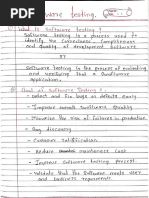 Software testing.
What is Software testing ?
Software testing is a process used to
identify the Correctness, Completeness
and Quality of developed Software
or
Software testing is the process of evaluating
and verifying that a Software
application.
Goal of Software Testing :
- Detect and fix bugs as soon as
- Improve overall Software Quality
- Minimize the risk of failures in production
- Bug discovery
- Customer satisfication
- Reduce maintenance Cost
- Improve Software testing process
- Validate that the Software meets user
and business requirements.